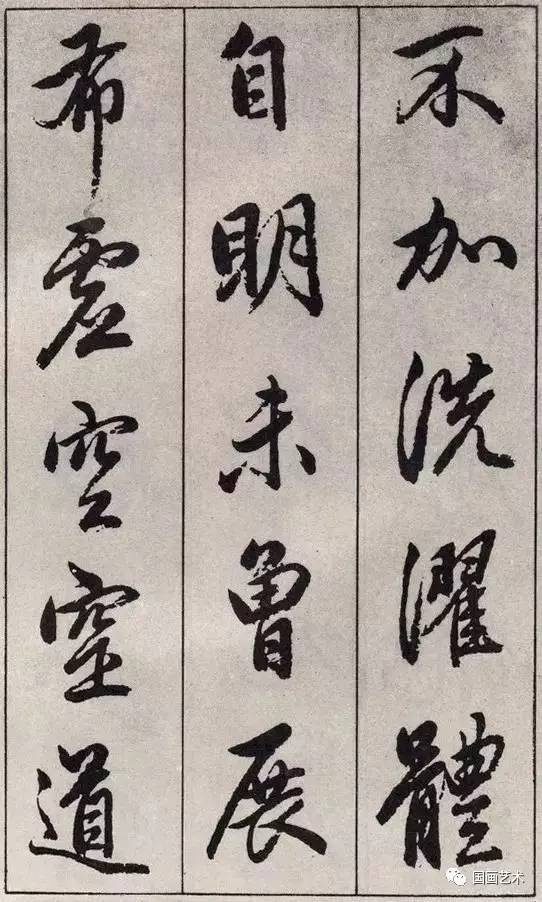 不加洗濯體
自明未曾展
布虛空窒道
国画艺术